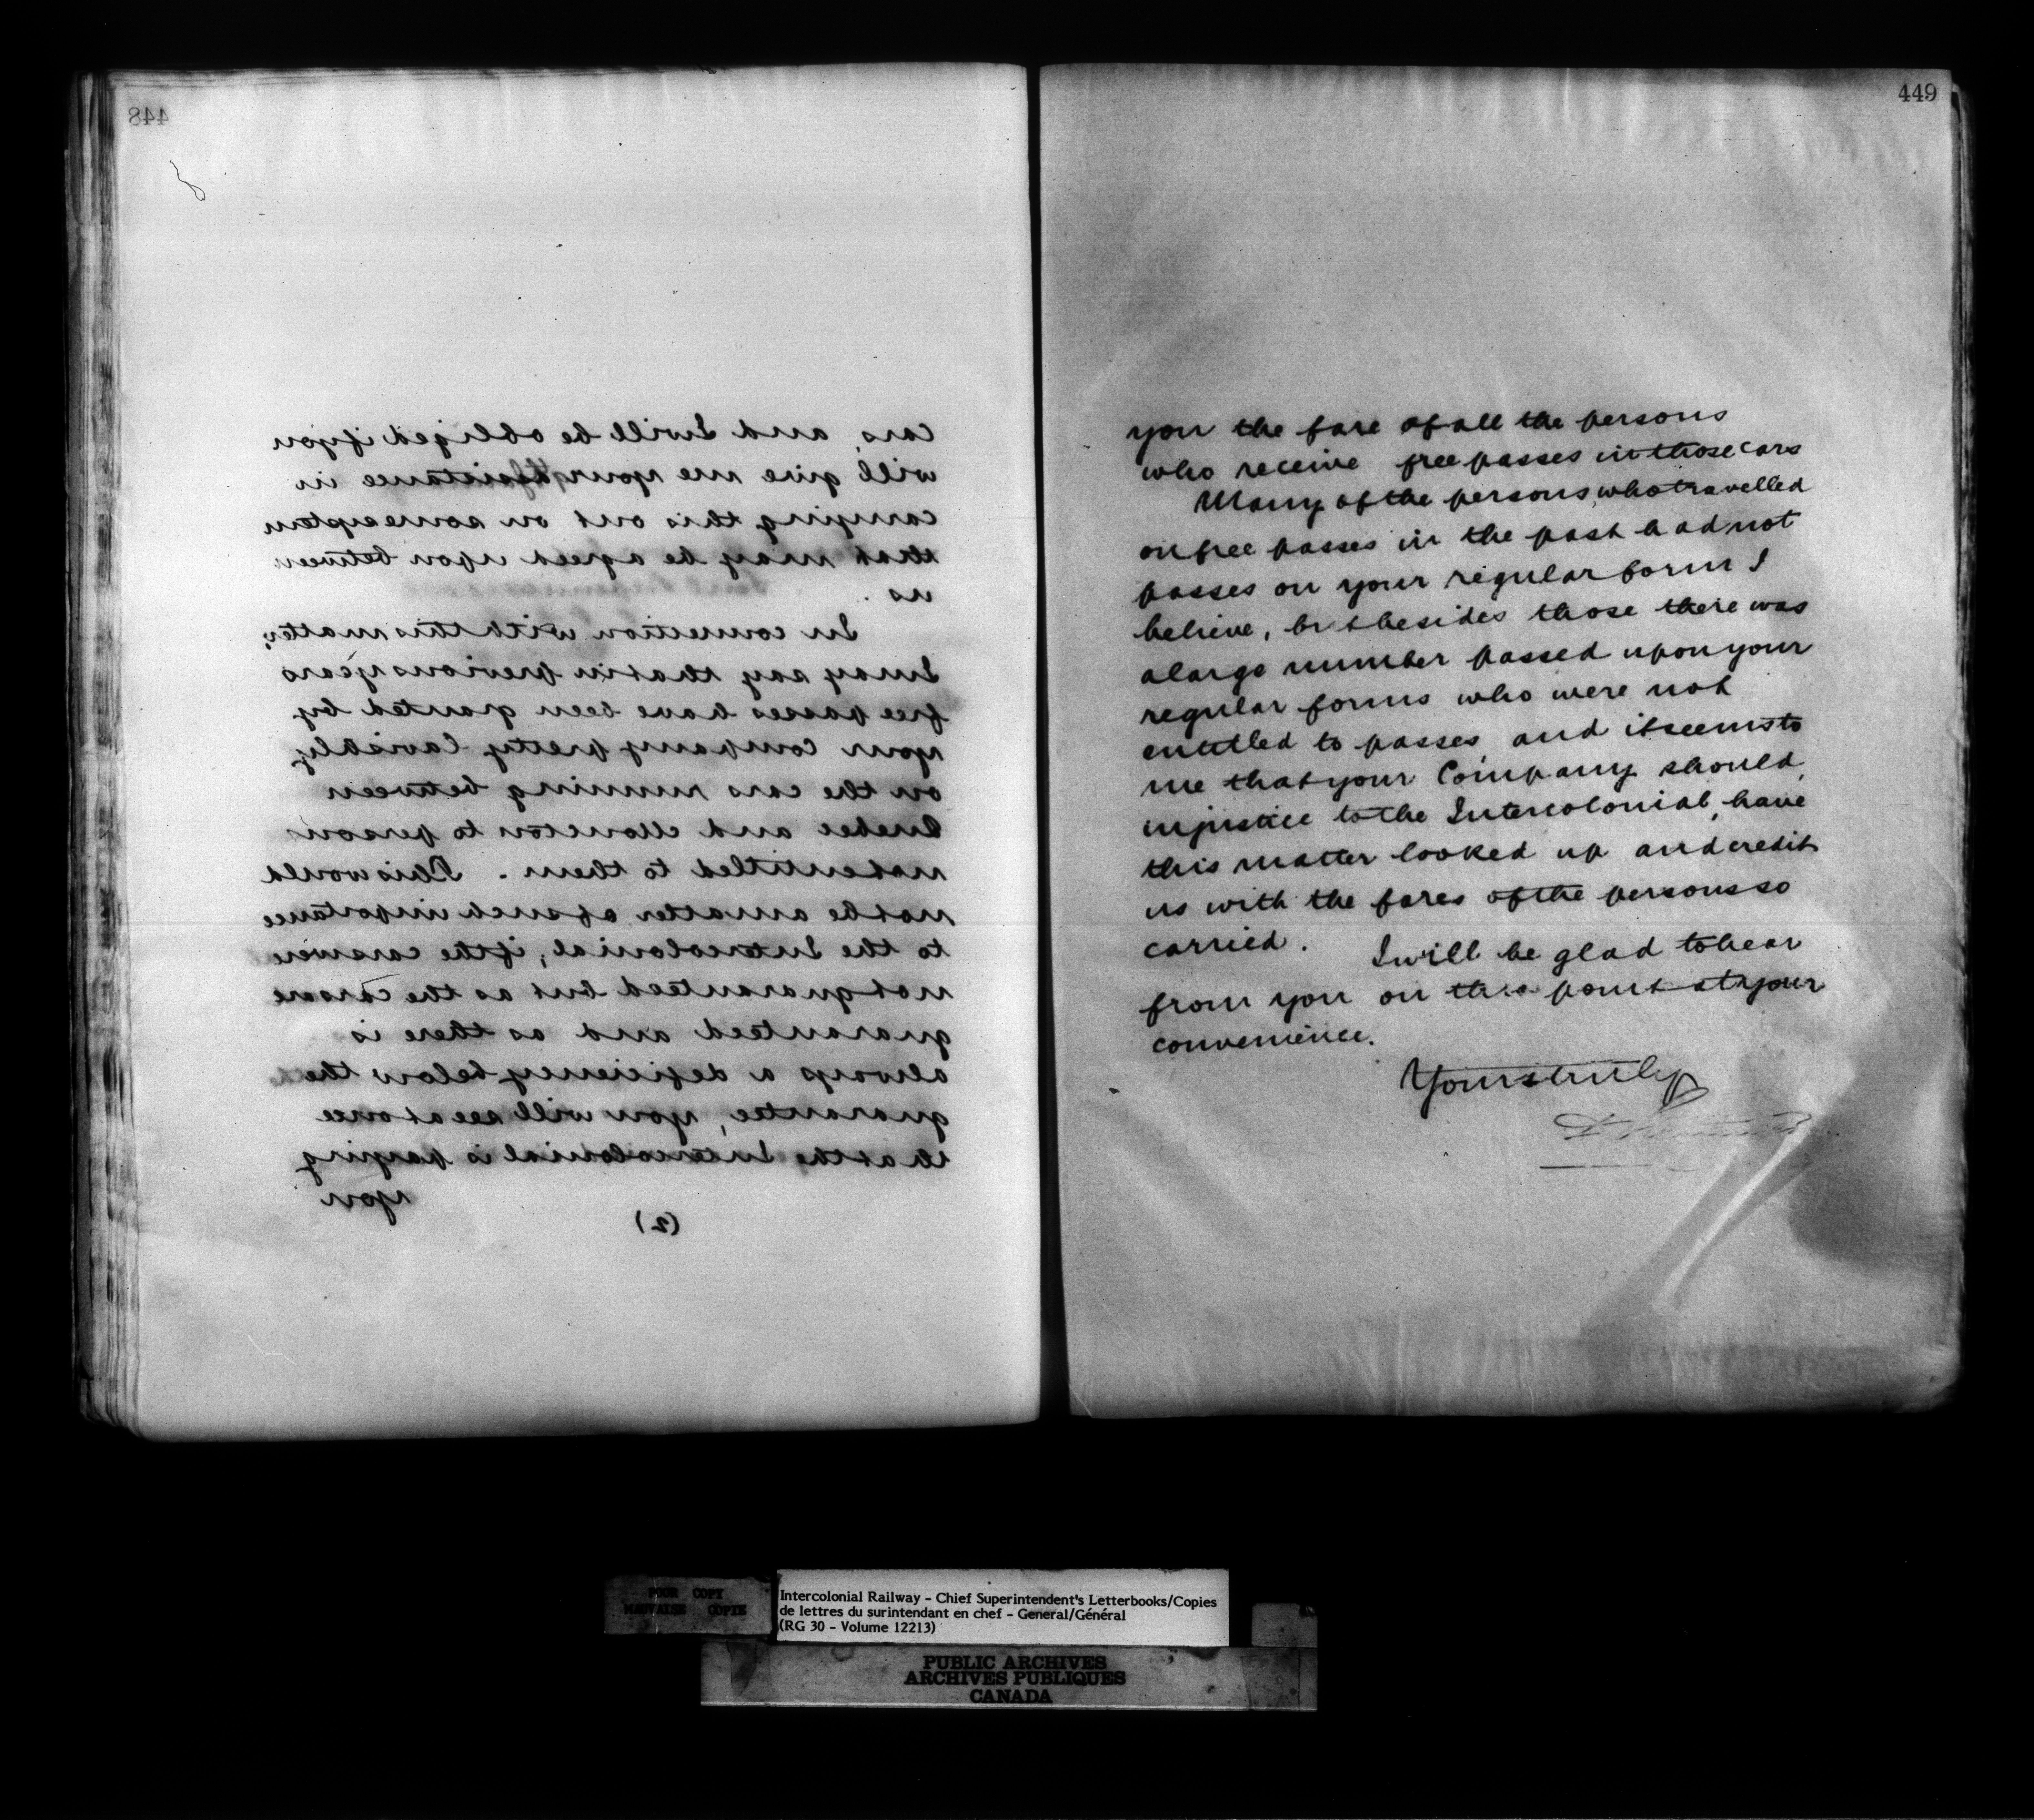 448
cars, and I will be obliged if you
will give me your assistance in
carrying this out on some system
that may be agreed upon between
us.
In connection with this matter,
I may say that in previous years
free passes have been granted by
your company pretty lavishly
on the cars running between
Quebec and Moncton to persons
not entitled to them. This would
not be a matter of such importance
to the Intercolonial, if the cars were
not guaranteed but as the cars are
guaranteed and as there is
always a deficiency below the
guarantee, you will see at once
that the Intercolonial is paying
you
(2)
449
you the fare of all the persons
who receive free passes in those cars
Many of the persons who travelled
on free passes in the past had not
passes on your regular form I
believe, but besides those there was
a large number passed upon your
regular forms who were not
entitled to passes, and it seems to
me that your Company should,
in justice to the Intercolonial, have
this matter looked up and credit
us with the fares of the persons so
carried. I will be glad to hear
from you on this point at your
convenience.
Yours truly
POOR COPY
MAUVAISE COPIE
Intercolonial Railway - Chief Superintendent's Letterbooks/Copies
de lettres du surintendant en chef - General/Général
(RG 30 - Volume 12213)
PUBLIC ARCHIVES
ARCHIVES PUBLIQUES
CANADA